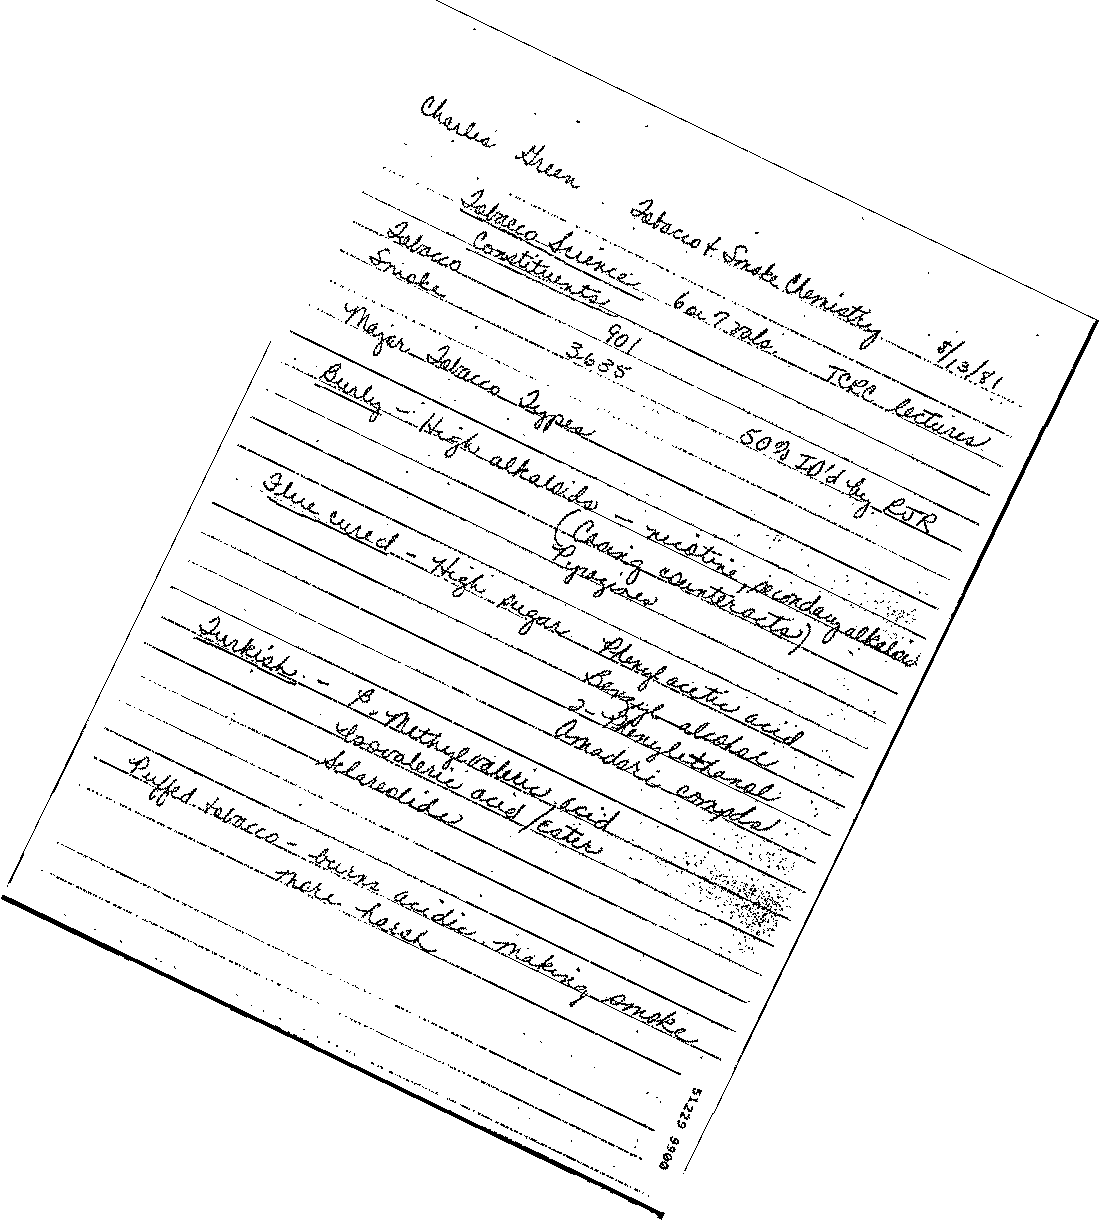 Charles Green Tobacco & Smoke Chemistry 8/13/81
Tobacco Science 6 or 7 vols. TCRC lectures
Constituents
Tobacco 901 50% ID'd by RJR
Smoke 3635
Major Tobacco Types
Burley - High alkaloids - nicotine, secondary alkaloi
(Casing counteracts)
Pyrazines
Flue cured - High sugar Phenylacetic acid
Benzyl alcohol
2-Phenylethanol
Amadori compds
Turkish - B. Methylvaleric acid
Isovaleric acid/ester
Sclareolide
Puffed tobacco - burns acidic making smoke
more harsh
51229 9900